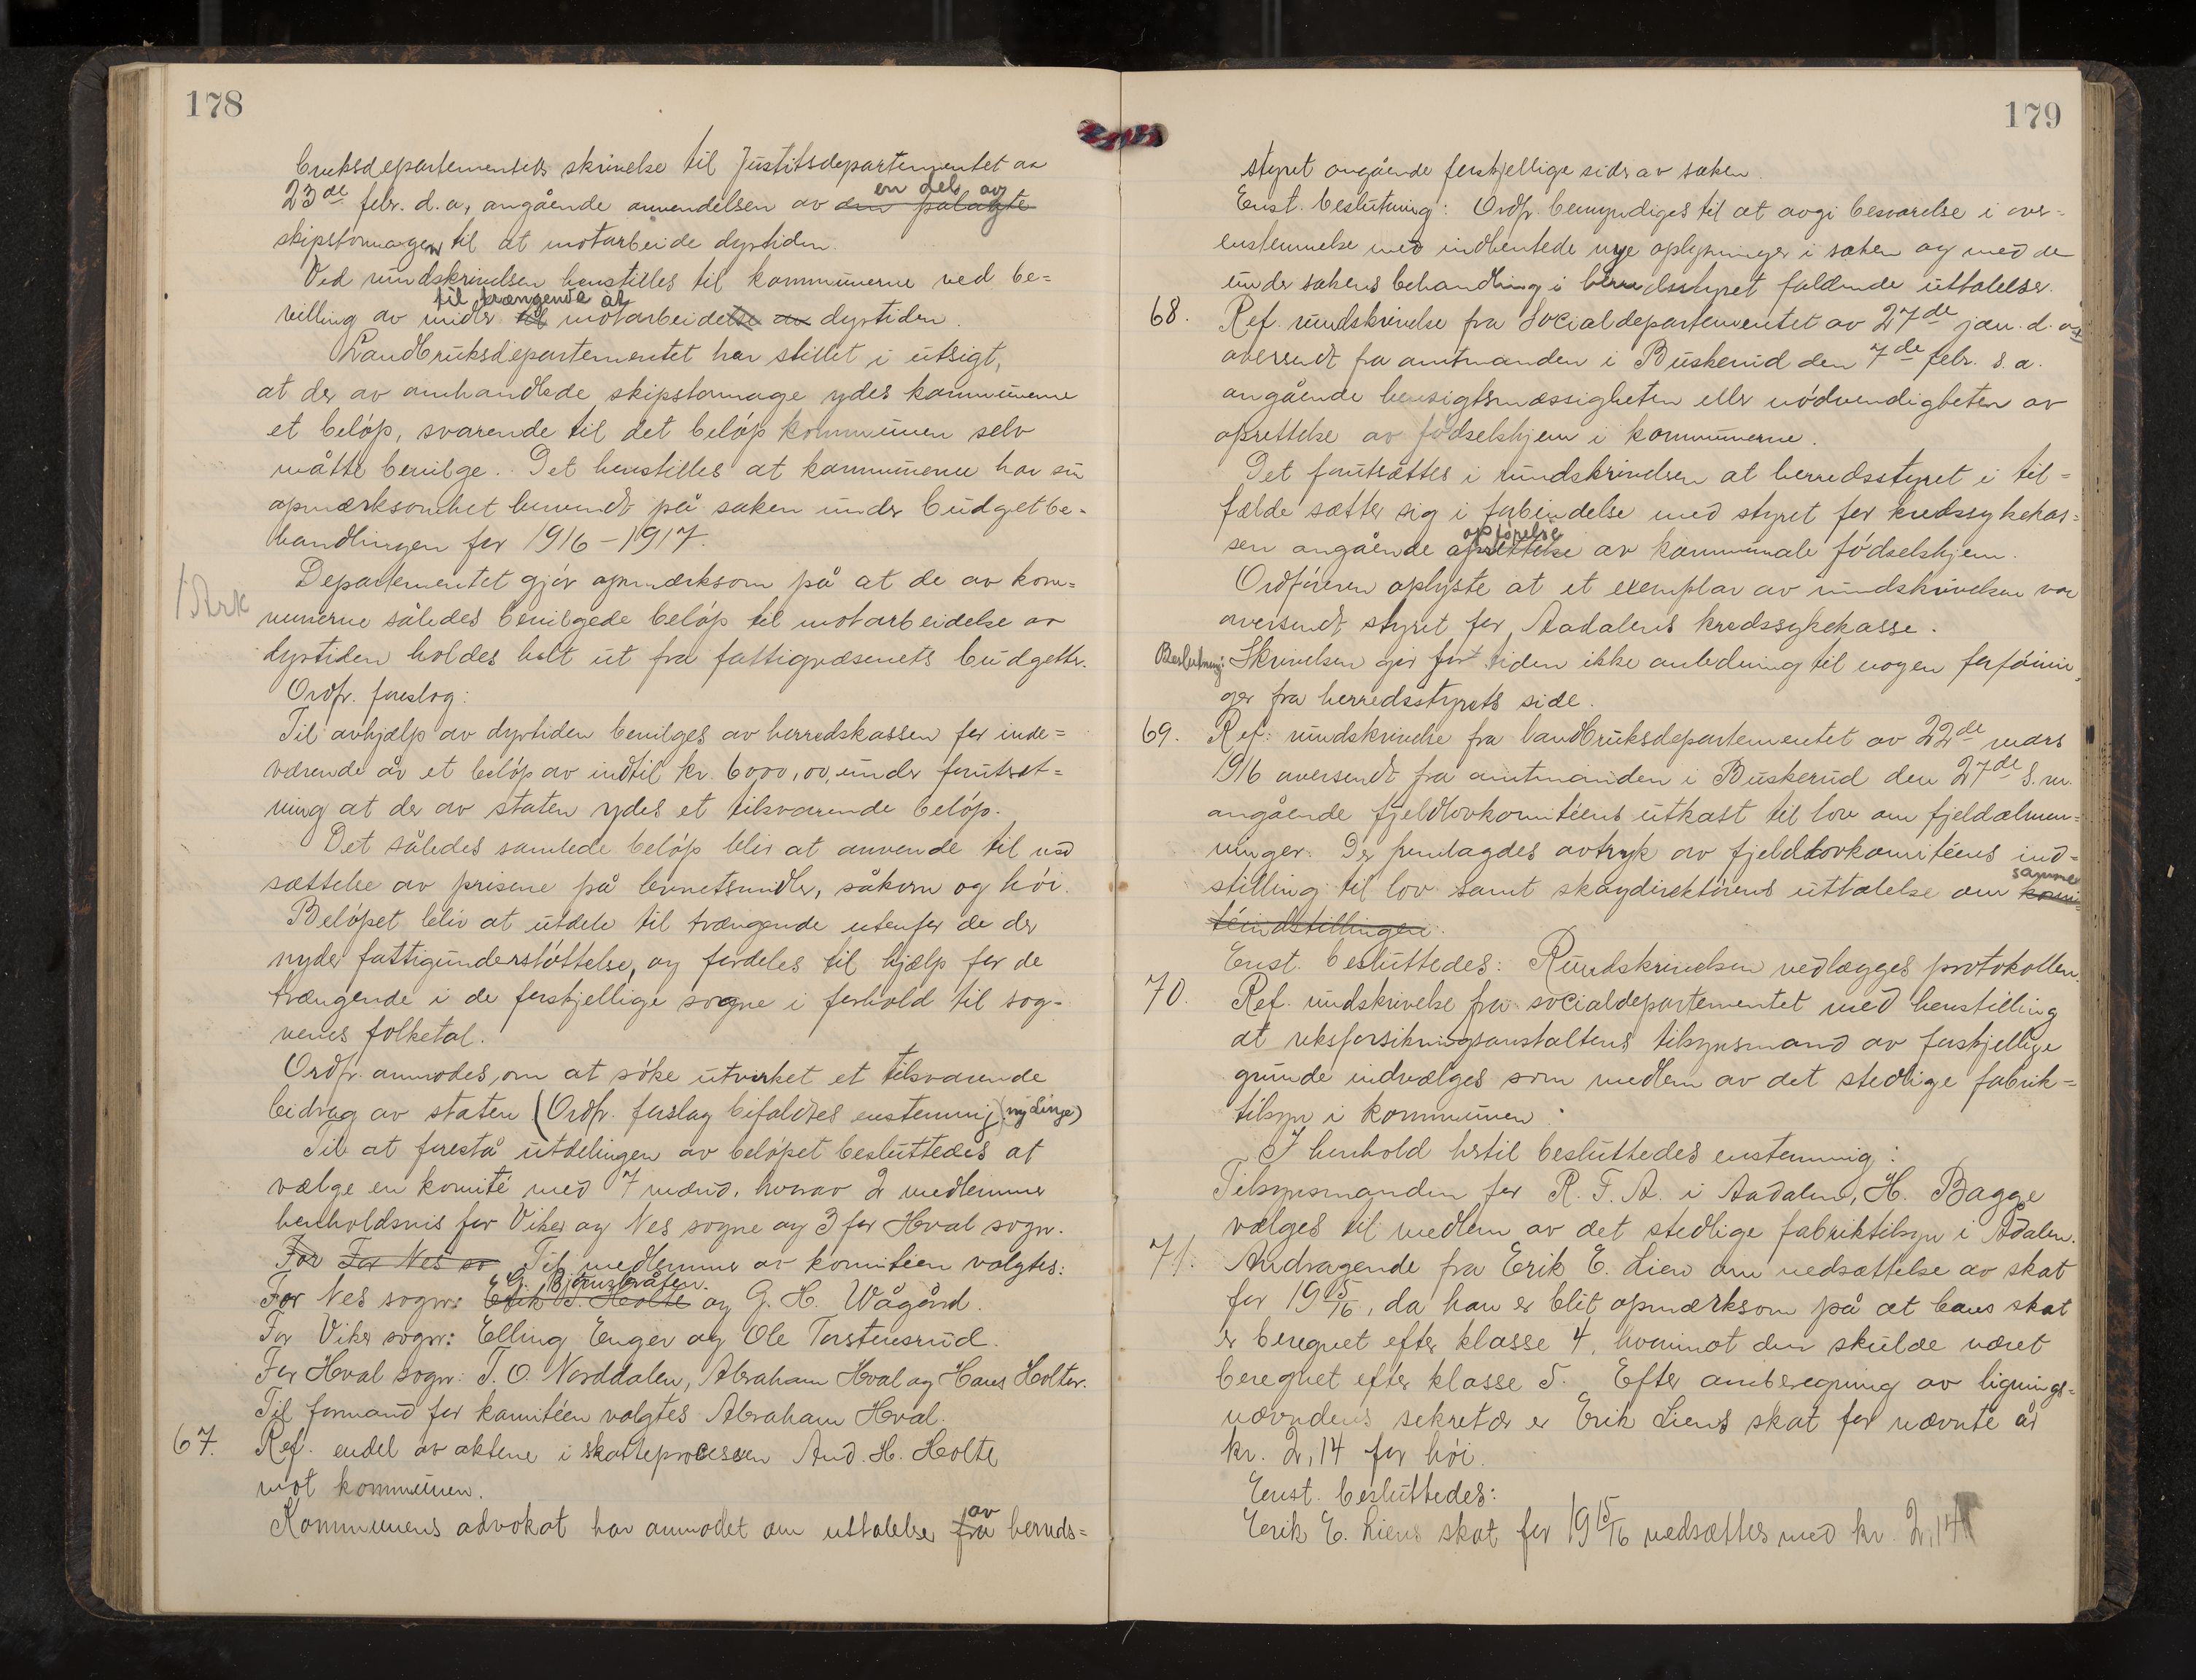 178
bruksdepartementets skrivelse til Justitsdepartementet av
en del av
23de febr. d.a, angående anvendelsen av den pålagte
skipstonnagen til at motarbeide dyrtiden.
Ved rundskrivelsen henstilles til kommunerne ved be=
til trængende at
villing av midler til motarbeidelse av dyrtiden.
Landbruksdepartementet har stillet i utsigt,
at der av omhandlede skipstonnage ydes kommunerne
et beløp, svarende til det beløp kommunen selv
måtte bevilge. Det henstilles at kommunerne har sin
opmærksomhet henvendt på saken under budgetbe-
handlingen for 1916-1917.
Departementet gjør opmærksom på at de av kom=
1 Ark
munerne således bevilgede beløp til motarbeidelse av
dyrtiden holdes helt ut fra fattigvæsenets budgetter.
Ordfr. foreslog:
Til avhjælp av dyrtiden bevilges av herredskassen for inde=
værende år et beløp av indtil kr. 6000,00, under forutsæt=
ning at der av staten ydes et tilsvarende beløp.
Det således samlede beløp blir at anvende til ned
sættelse av prisene på levnetsmidler, såkorn og høi.
Beløpet blir at utdele til trængende utenfor de der
nyder fattigunderstøttelse, og fordeles til hjælp for de
trængende i de forskjellige sogne i forhold til sog-
nenes folketal.
Ordfr. anmodes om at søke utvirket et tilsvarende
bidrag av staten (Ordfr. forslag bifaldtes enstemmig) (ny linje)
Til at forestå utdelingen av beløpet besluttedes at
vælge en komité med 7 mænd, hvorav 2 medlemmer
henholdsvis for Viker og Nes sogne og 3 for Hval sogn.
For For Nes so Til medlemmer av komitéen valgtes:
G. Bjørnebråten
For Nes sogn: Erik T. Holte og G. H. Wågård.
For Viker sogn: Elling Enger og Ole Torstensrud.
For Hval sogn: T. O. Norddalen, Abraham Hval og Hans Holter.
Til formand for komitéen valgtes Abraham Hval.
67. Ref. endel av aktene i skatteprocessen And. H. Holte
mot kommunen.
av
Kommunens advokat har anmodet om uttalelse fra herreds=
179
styret angående forskjellige sider av saken.
Enst. beslutning: Ordfr. bemyndiges til at avgi besvarelse i over=
enstemmelse med indhentede nye oplysninger i saken og med de
under sakens behandling i herredsstyret faldende uttalelser.
68. Ref. rundskrivelse fra Socialdepartementet av 27de jan. d.a.
oversendt fra amtmanden i Buskerud den 7de febr. s.a.
angående hensigtsmæssigheten eller nødvendigheten av
oprettelse av fødselshjem i kommunerne.
Det forutsættes i rundskrivelsen at herredsstyret i til=
fælde sætter sig i forbindelse med styret for kredssykekas=
opførelse
sen angående oprettelse av kommunale fødselshjem.
Ordføreren oplyste at et exemplar av rundskrivelsen var
oversendt styret for Aadalens kredssykekasse.
Beslutning: Skrivelsen gir for tiden ikke anledning til nogen forføinin,
ger fra herredsstyrets side.
69. Ref: rundskrivelse fra landbruksdepartementet av 22de mars
1916 oversendt fra amtmanden i Buskerud den 27de s.m.
angående fjeldlovkomitéens utkast til lov om fjeldalmen=
ninger. Der fremlagdes avtryk av fjeldlovkomitéens ind=
samme
stilling til lov samt skogdirektørens uttalelse om komi=
téindstillingen.
Enst. besluttedes: Rundskrivelsen vedlægges protokollen.
70. Ref. rundskrivelse fra socialdepartementet med henstilling
at riksforsikringsanstaltens tilsynsmand av forskjellige
grunde indvælges som medlem av det stedlige fabrik=
tilsyn i kommunen.
I henhold hertil besluttedes enstemmig:
Tilsynsmanden for R. F. A. i Aadalen, H. Bagge
vælges til medlem av det stedlige fabriktilsyn i Ådalen.
71. Andragende fra Erik E. Lien om nedsættelse av skat
for 1915/16, da han er blit opmærksom på at hans skat
er beregnet efter klasse 4, hvorimot den skulde været
beregnet efter klasse 5. Efter omberegning av lignings=
nævndens sekretær er Erik Liens skat for nævnte år
kr. 2,14 for høi.
Enst. besluttedes:
Erik E. Liens skat for 1915/16 nedsættes med kr. 2,14